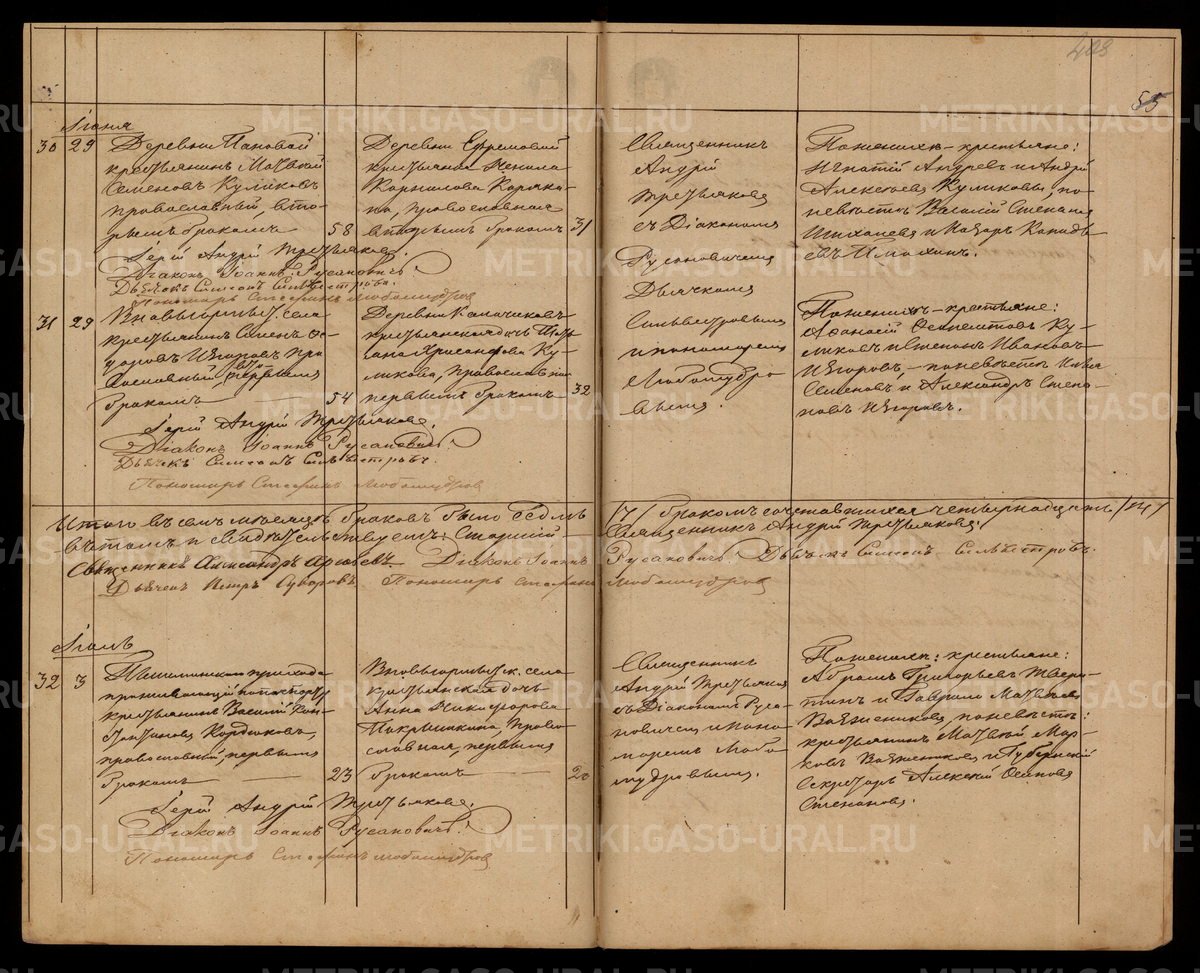 403
55
Іюня
30 29 Деревни Пановой
крестьянинъ Матвей
Семеновъ Куликовъ
православный, вто-
рымъ бракомъ 58
Деревни Ефремовой
Корнилова Коряки-
на, православная
вторымъ бракомъ 31
Священникъ
Андрій
Третьяковъ
съ Діакономъ
Русановичемъ
Дьячкомъ
Сильвестровымъ
и пономаремъ
Любомудро
вымъ.
Поженихѣ-крестьяне:
Игнатій Андреевъ и Андрей
Алексеевъ Куликовы, по
невѣстѣ Василій Степановъ
и Назаръ
Іерей Андрій Третьяковъ.
Діаконъ Іоаннъ Русановичъ.
Дьячекъ Симеонъ Сильвестровъ.
Пономарь Стефанъ Любомудровъ
31 29 Вновьюрмытск. села
крестьянинъ Семенъ Фе-
доровъ Егоровъ, пра
вославный, вто-
рымъ
бракомъ 54
Деревни Калачиковъ
крестьянская дочь
Хрисанфова Ку-
ликова, православная
первымъ бракомъ 32
Поженихѣ-крестьяне:
Афанасій Куликовъ и Семенъ Ивановъ
Егоровъ,- поневѣстѣ
Семеновъ и Александръ Степа-
новъ Егоровъ.
Іерей Андрій Третьяковъ.
Діаконъ Іоаннъ Русановичъ.
Дьячекъ Симеонъ Сильвестровъ.
Пономарь Стефанъ Любомудровъ
Итого въ семъ мѣсяцѣ браковъ было седмь /7/ бракомъ сочетавшихся четырнадцать /14/
въ томъ и свидѣтельствуемъ: Старшій Священникъ Андрій Третьяковъ.
Священникъ Александръ Діаконъ Іоаннъ Русановичъ. Дьячекъ Симеонъ Сильвестровъ.
Дьячекъ Петръ Суворовъ. Пономарь Стефанъ Любомудровъ
Іюль
32 3 прихода
проживающій по паспорту
крестьянинъ Василій Кон-
стантиновъ Кордюковъ,
православный, первымъ
бракомъ 23
Вновьюрмытск. села
крестьянская дочь
Анна Никифорова
Покрышкина, право-
славная, первымъ
бракомъ 20
Священникъ
Андрій Третьяковъ
съ Діакономъ Руса-
новичемъ и поно
маремъ Любо
мудровымъ.
Поженихѣ: крестьяне:
Абрамъ Григорьевъ
и Гаврило Матвѣевъ
Важенниковъ, поневѣстѣ:
крестьянинъ Матвей Мар-
ковъ Важенниковъ и Губернскій
Секретарь Алексій Осиповъ
Степановъ.
Іерей Андрій Третьяковъ.
Діаконъ Іоаннъ Русановичъ.
Пономарь Стефанъ Любомудровъ
METRIKI.GASO-URAL.RU